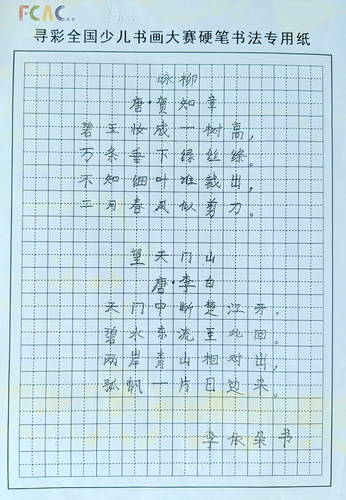 FCAC..
寻彩全国少儿书画大赛硬笔书法专用纸
咏柳
唐·贺知章
碧玉妆成一树高,
万条垂下绿丝绦。
不知细叶谁裁出,
二月春风似剪刀。
望天门山
唐·李白
天门中断楚江开.
碧水东流至此回.
两岸青山相对出,
孤帆一片日边来。
李依朵书